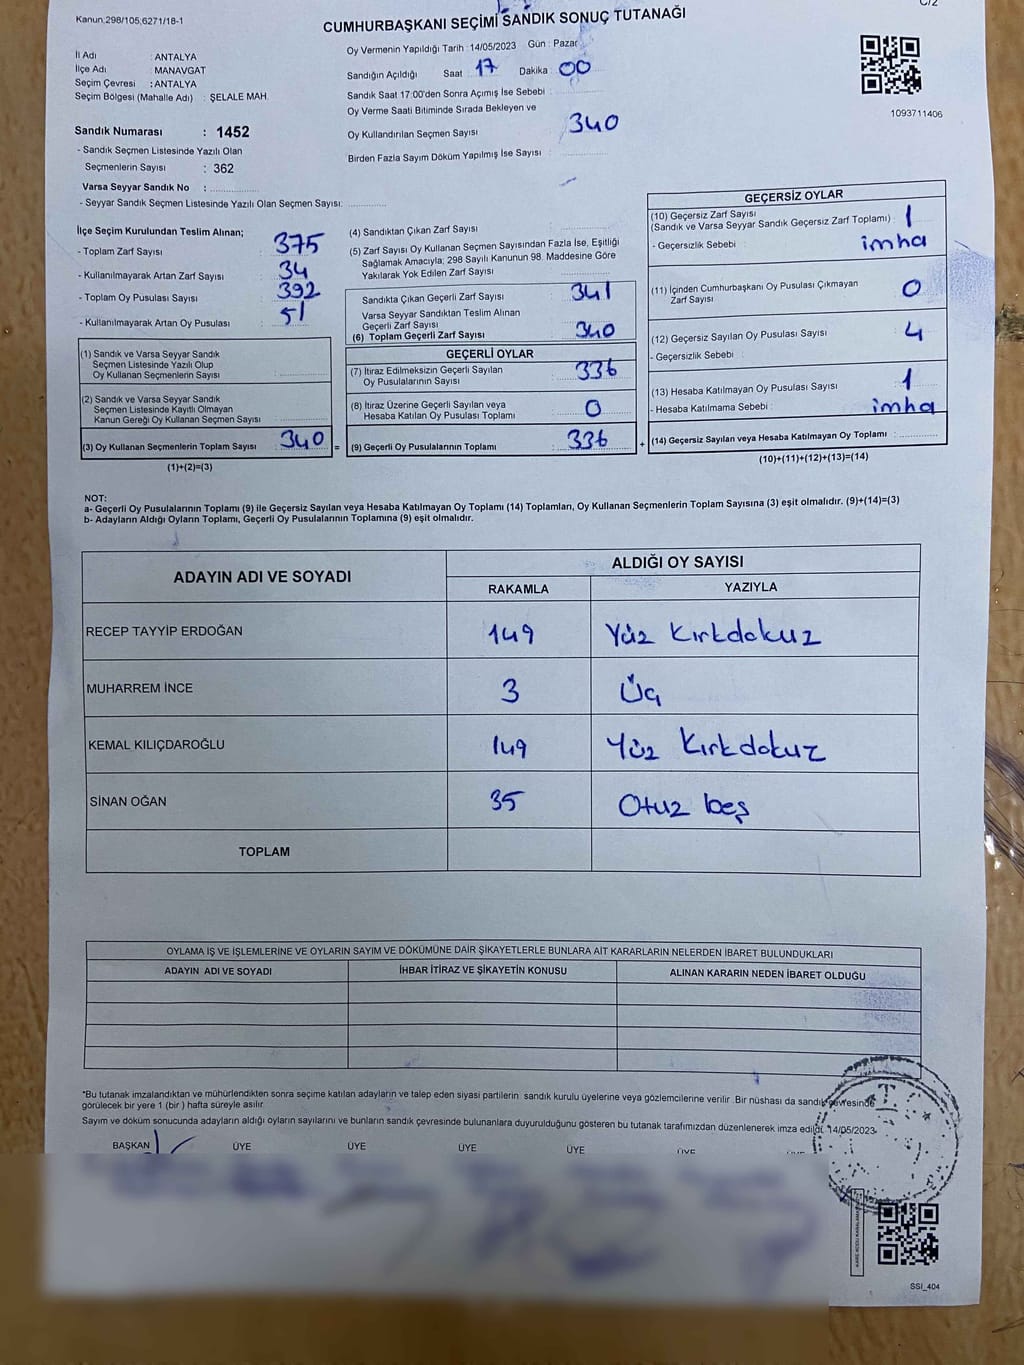 Kanun.298/105,6271/18-1
C/2
CUMHURBAŞKANI SEÇİMİ SANDIK SONUÇ TUTANAĞI
İl Adı : ANTALYA
İlçe Adı : MANAVGAT
Seçim Çevresi : ANTALYA
Seçim Bölgesi (Mahalle Adı) : ŞELALE MAH.
Sandık Numarası : 1452
- Sandık Seçmen Listesinde Yazılı Olan
Seçmenlerin Sayısı : 362
Varsa Seyyar Sandık No :
- Seyyar Sandık Seçmen Listesinde Yazılı Olan Seçmen Sayısı:
Oy Vermenin Yapıldığı Tarih : 14/05/2023 Gün : Pazar
Sandığın Açıldığı Saat 17 Dakika : 00
Sandık Saat 17:00'den Sonra Açımış İse Sebebi :
Oy Verme Saati Bitiminde Sırada Bekleyen ve
Oy Kullandırılan Seçmen Sayısı : 340
Birden Fazla Sayım Döküm Yapılmış İse Sayısı :
1093711406
İlçe Seçim Kurulundan Teslim Alınan;
- Toplam Zarf Sayısı : 375
- Kullanılmayarak Artan Zarf Sayısı : 34
- Toplam Oy Pusulası Sayısı : 392
- Kullanılmayarak Artan Oy Pusulası : 51
(1) Sandık ve Varsa Seyyar Sandık
Seçmen Listesinde Yazılı Olup
Oy Kullanan Seçmenlerin Sayısı :
(2) Sandık ve Varsa Seyyar Sandık
Seçmen Listesinde Kayıtlı Olmayan
Kanun Gereği Oy Kullanan Seçmen Sayısı :
(3) Oy Kullanan Seçmenlerin Toplam Sayısı : 340 =
(1)+(2)=(3)
(4) Sandıktan Çıkan Zarf Sayısı :
(5) Zarf Sayısı Oy Kullanan Seçmen Sayısından Fazla İse, Eşitliği
Sağlamak Amacıyla; 298 Sayılı Kanunun 98. Maddesine Göre
Yakılarak Yok Edilen Zarf Sayısı :
Sandıkta Çıkan Geçerli Zarf Sayısı : 341
Varsa Seyyar Sandıktan Teslim Alınan
Geçerli Zarf Sayısı :
(6) Toplam Geçerli Zarf Sayısı : 340
GEÇERLİ OYLAR
(7) İtiraz Edilmeksizin Geçerli Sayılan
Oy Pusulalarının Sayısı : 336
(8) İtiraz Üzerine Geçerli Sayılan veya
Hesaba Katılan Oy Pusulası Toplamı : 0
(9) Geçerli Oy Pusulalarının Toplamı : 336 +
GEÇERSİZ OYLAR
(10) Geçersiz Zarf Sayısı : 1
(Sandık ve Varsa Seyyar Sandık Geçersiz Zarf Toplamı)
- Geçersizlik Sebebi : imha
(11) İçinden Cumhurbaşkanı Oy Pusulası Çıkmayan
Zarf Sayısı : 0
(12) Geçersiz Sayılan Oy Pusulası Sayısı : 4
- Geçersizlik Sebebi :
(13) Hesaba Katılmayan Oy Pusulası Sayısı : 1
- Hesaba Katılmama Sebebi : imha
(14) Geçersiz Sayılan veya Hesaba Katılmayan Oy Toplamı :
(10)+(11)+(12)+(13)=(14)
NOT:
a- Geçerli Oy Pusulalarının Toplamı (9) ile Geçersiz Sayılan veya Hesaba Katılmayan Oy Toplamı (14) Toplamları, Oy Kullanan Seçmenlerin Toplam Sayısına (3) eşit olmalıdır. (9)+(14)=(3)
b- Adayların Aldığı Oyların Toplamı, Geçerli Oy Pusulalarının Toplamına (9) eşit olmalıdır.
ADAYIN ADI VE SOYADI
ALDIĞI OY SAYISI
RAKAMLA YAZIYLA
RECEP TAYYİP ERDOĞAN 149 Yüz Kırkdokuz
MUHARREM İNCE 3 Üç
KEMAL KILIÇDAROĞLU 149 Yüz Kırkdokuz
SİNAN OĞAN 35 Otuz beş
TOPLAM
OYLAMA İŞ VE İŞLEMLERİNE VE OYLARIN SAYIM VE DÖKÜMÜNE DAİR ŞİKAYETLERLE BUNLARA AİT KARARLARIN NELERDEN İBARET BULUNDUKLARI
ADAYIN ADI VE SOYADI İHBAR İTİRAZ VE ŞİKAYETİN KONUSU ALINAN KARARIN NEDEN İBARET OLDUĞU
*Bu tutanak imzalandıktan ve mühürlendikten sonra seçime katılan adayların ve talep eden siyasi partilerin sandık kurulu üyelerine veya gözlemcilerine verilir. Bir nüshası da sandık çevresinde
görülecek bir yere 1 (bir) hafta süreyle asılır.
Sayım ve döküm sonucunda adayların aldığı oyların sayılarını ve bunların sandık çevresinde bulunanlara duyurulduğunu gösteren bu tutanak tarafımızdan düzenlenerek imza edildi. 14/05/2023
BAŞKAN ÜYE ÜYE ÜYE ÜYE ÜYE
SSİ_404